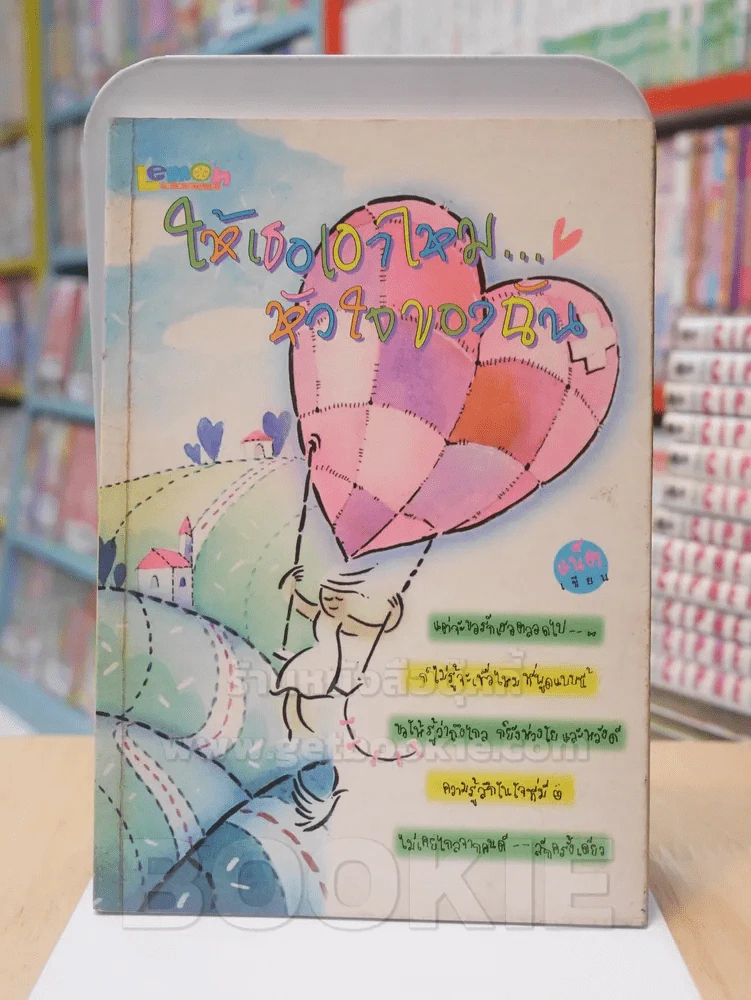 Lemon
ให้เธอเอาไหม...
หัวใจของฉัน
แน็ต
เขียน
แต่จะขอรักเธอตลอดไป --
ก็ไม่รู้จะเชื่อไหม ที่พูดแบบนี้
ขอให้รู้ว่าถึงไกล ก็ยังห่วงใย และหวังดี
ความรู้สึกในใจที่มี
ไม่เคยไกลจากคนดี -- สักครั้งเดียว
ร้านหนังสือบุ๊คกี้
www.getbookie.com
BOOKIE